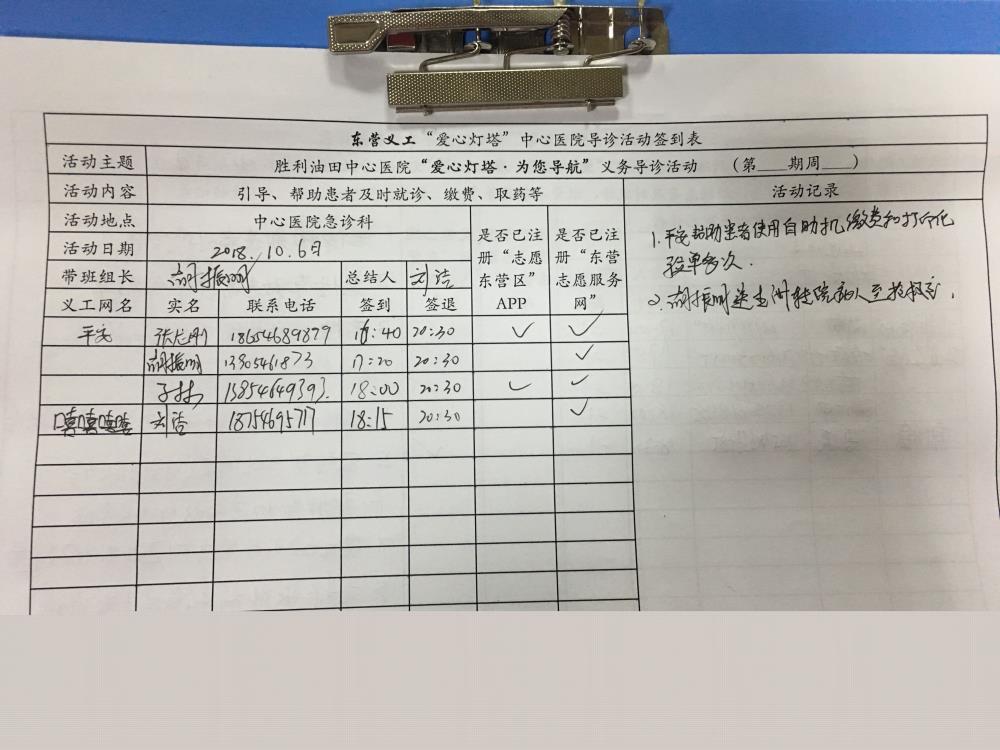 东营义工“爱心灯塔”中心医院导诊活动签到表
活动主题 胜利油田中心医院“爱心灯塔·为您导航”义务导诊活动 (第___期周___)
活动内容 引导、帮助患者及时就诊、缴费、取药等 活动记录
活动地点 中心医院急诊科 是否已注册“志愿东营区”APP 是否已注册“东营志愿服务网”
活动日期 2018.10.6日
带班组长 胡振明 总结人 刘浩
义工网名 实名 联系电话 签到 签退
平安 18654689879 16:40 20:30 ✓ ✓
胡振明 20:30 ✓
13854649393 18:00 20:30 ✓ ✓
嘻嘻嘻嘻 刘浩 18754695717 18:15 20:30 ✓
1.平安帮助患者使用自助机缴费和打印化
验单多次.
2.胡振明